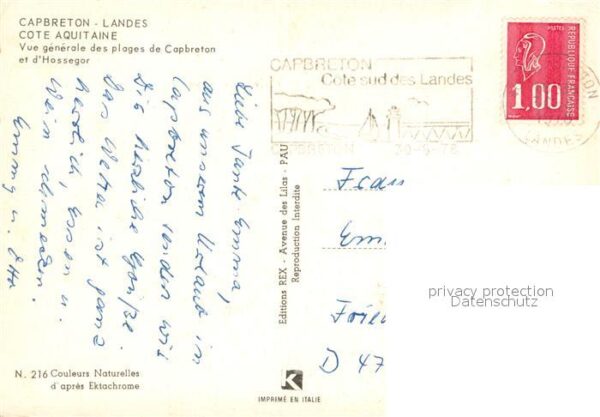 CAPBRETON - LANDES
COTE AQUITAINE
Vue générale des plages de Capbreton
et d'Hossegor
Liebe Tante Emma,
aus unserem Urlaub in
Capbreton senden wir
Dir herzliche Grüße.
Das Wetter ist ganz
herrlich, Essen u.
Wein schmecken.
Emmy u. Otto
N. 216 Couleurs Naturelles
d'après Ektachrome
Editions REX - Avenue des Lilas - PAU
Reproduction Interdite
K
IMPRIMÉ EN ITALIE
CAPBRETON
Cote sud des Landes
CAPBRETON
POSTES
REPUBLIQUE FRANCAISE
1,00
LANDES
Frau
Em
Frie
D 47
privacy protection
Datenschutz